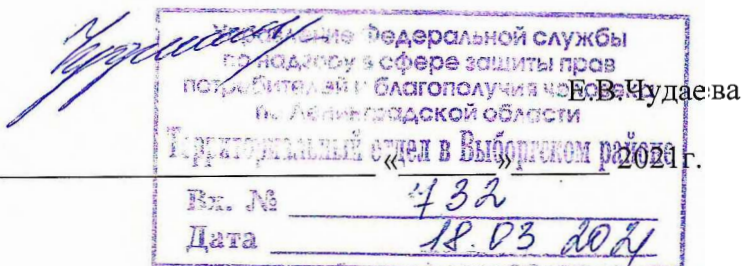 Управление Федеральной службы
по надзору в сфере защиты прав
потребителей и благополучия человека
Е.В.Чудаева
по Ленинградской области
Территориальный отдел в Выборгском районе
«______»________ 2021г.
Вх. № 732
Дата 18.03 2021